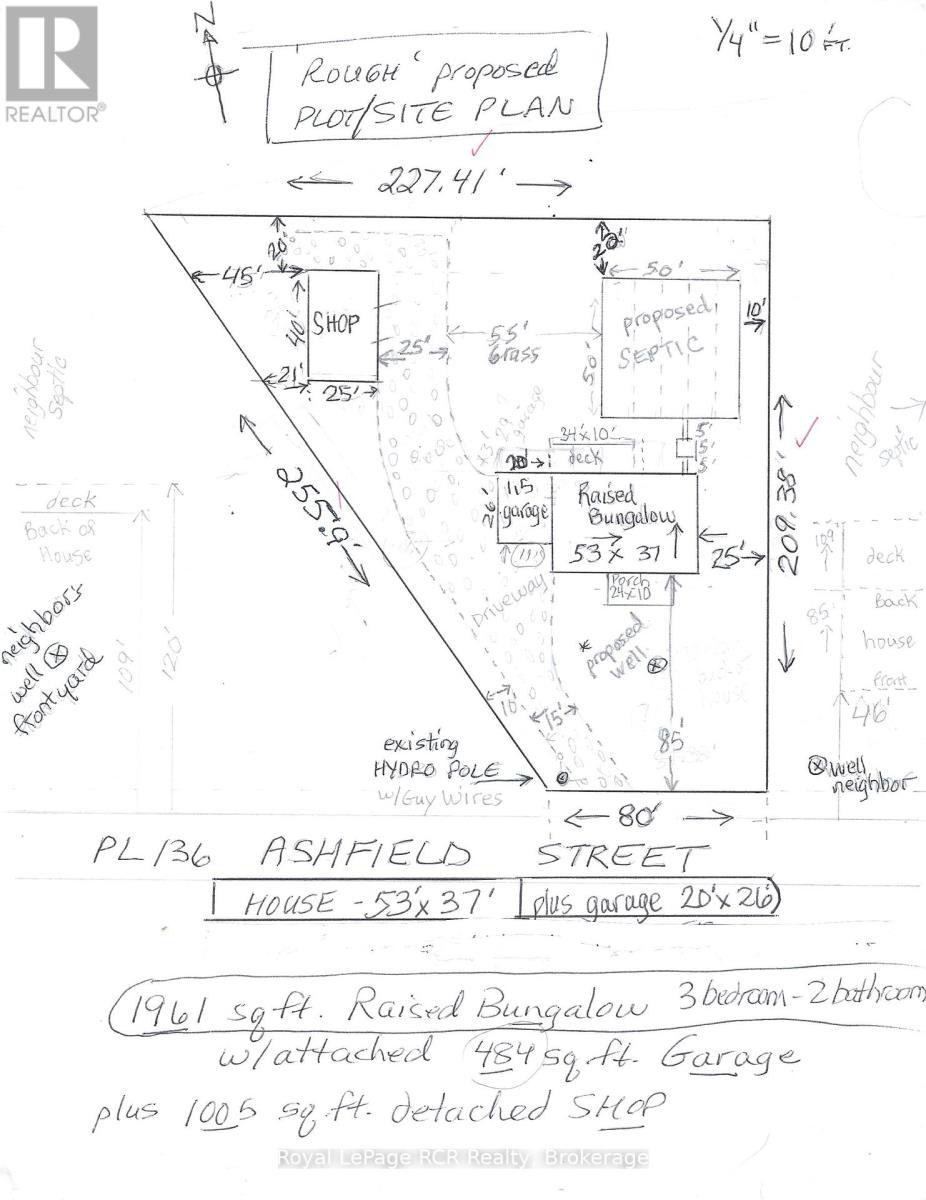 REALTOR®
N
1/4" = 10 FT.
ROUGH' proposed
PLOT/SITE PLAN
227.41'
20'
20'
45'
50'
10'
40'
SHOP
proposed
SEPTIC
25'
55'
Grass
50'
21'
25'
neighbour
septic
neighbour
septic
garage
34'x10'
deck
5'
5'
5'
20'
26'
115
garage
Raised
Bungalow
53 x 37
25'
255.9'
209.38'
deck
Back of
House
109'
deck
Porch
24x10
Driveway
Back
85'
house
front
46'
neighbor's
well
frontyard
109'
120'
* proposed
well
10'
15'
85'
existing
HYDRO POLE
w/Guy Wires
well
neighbor
80'
PL 136 ASHFIELD STREET
HOUSE - 53'x 37' plus garage 20'x 26'
1961 sq ft. Raised Bungalow 3 bedroom - 2 bathroom
w/attached 484 sq.ft. Garage
plus 1005 sq.ft. detached SHOP
Royal LePage RCR Realty, Brokerage